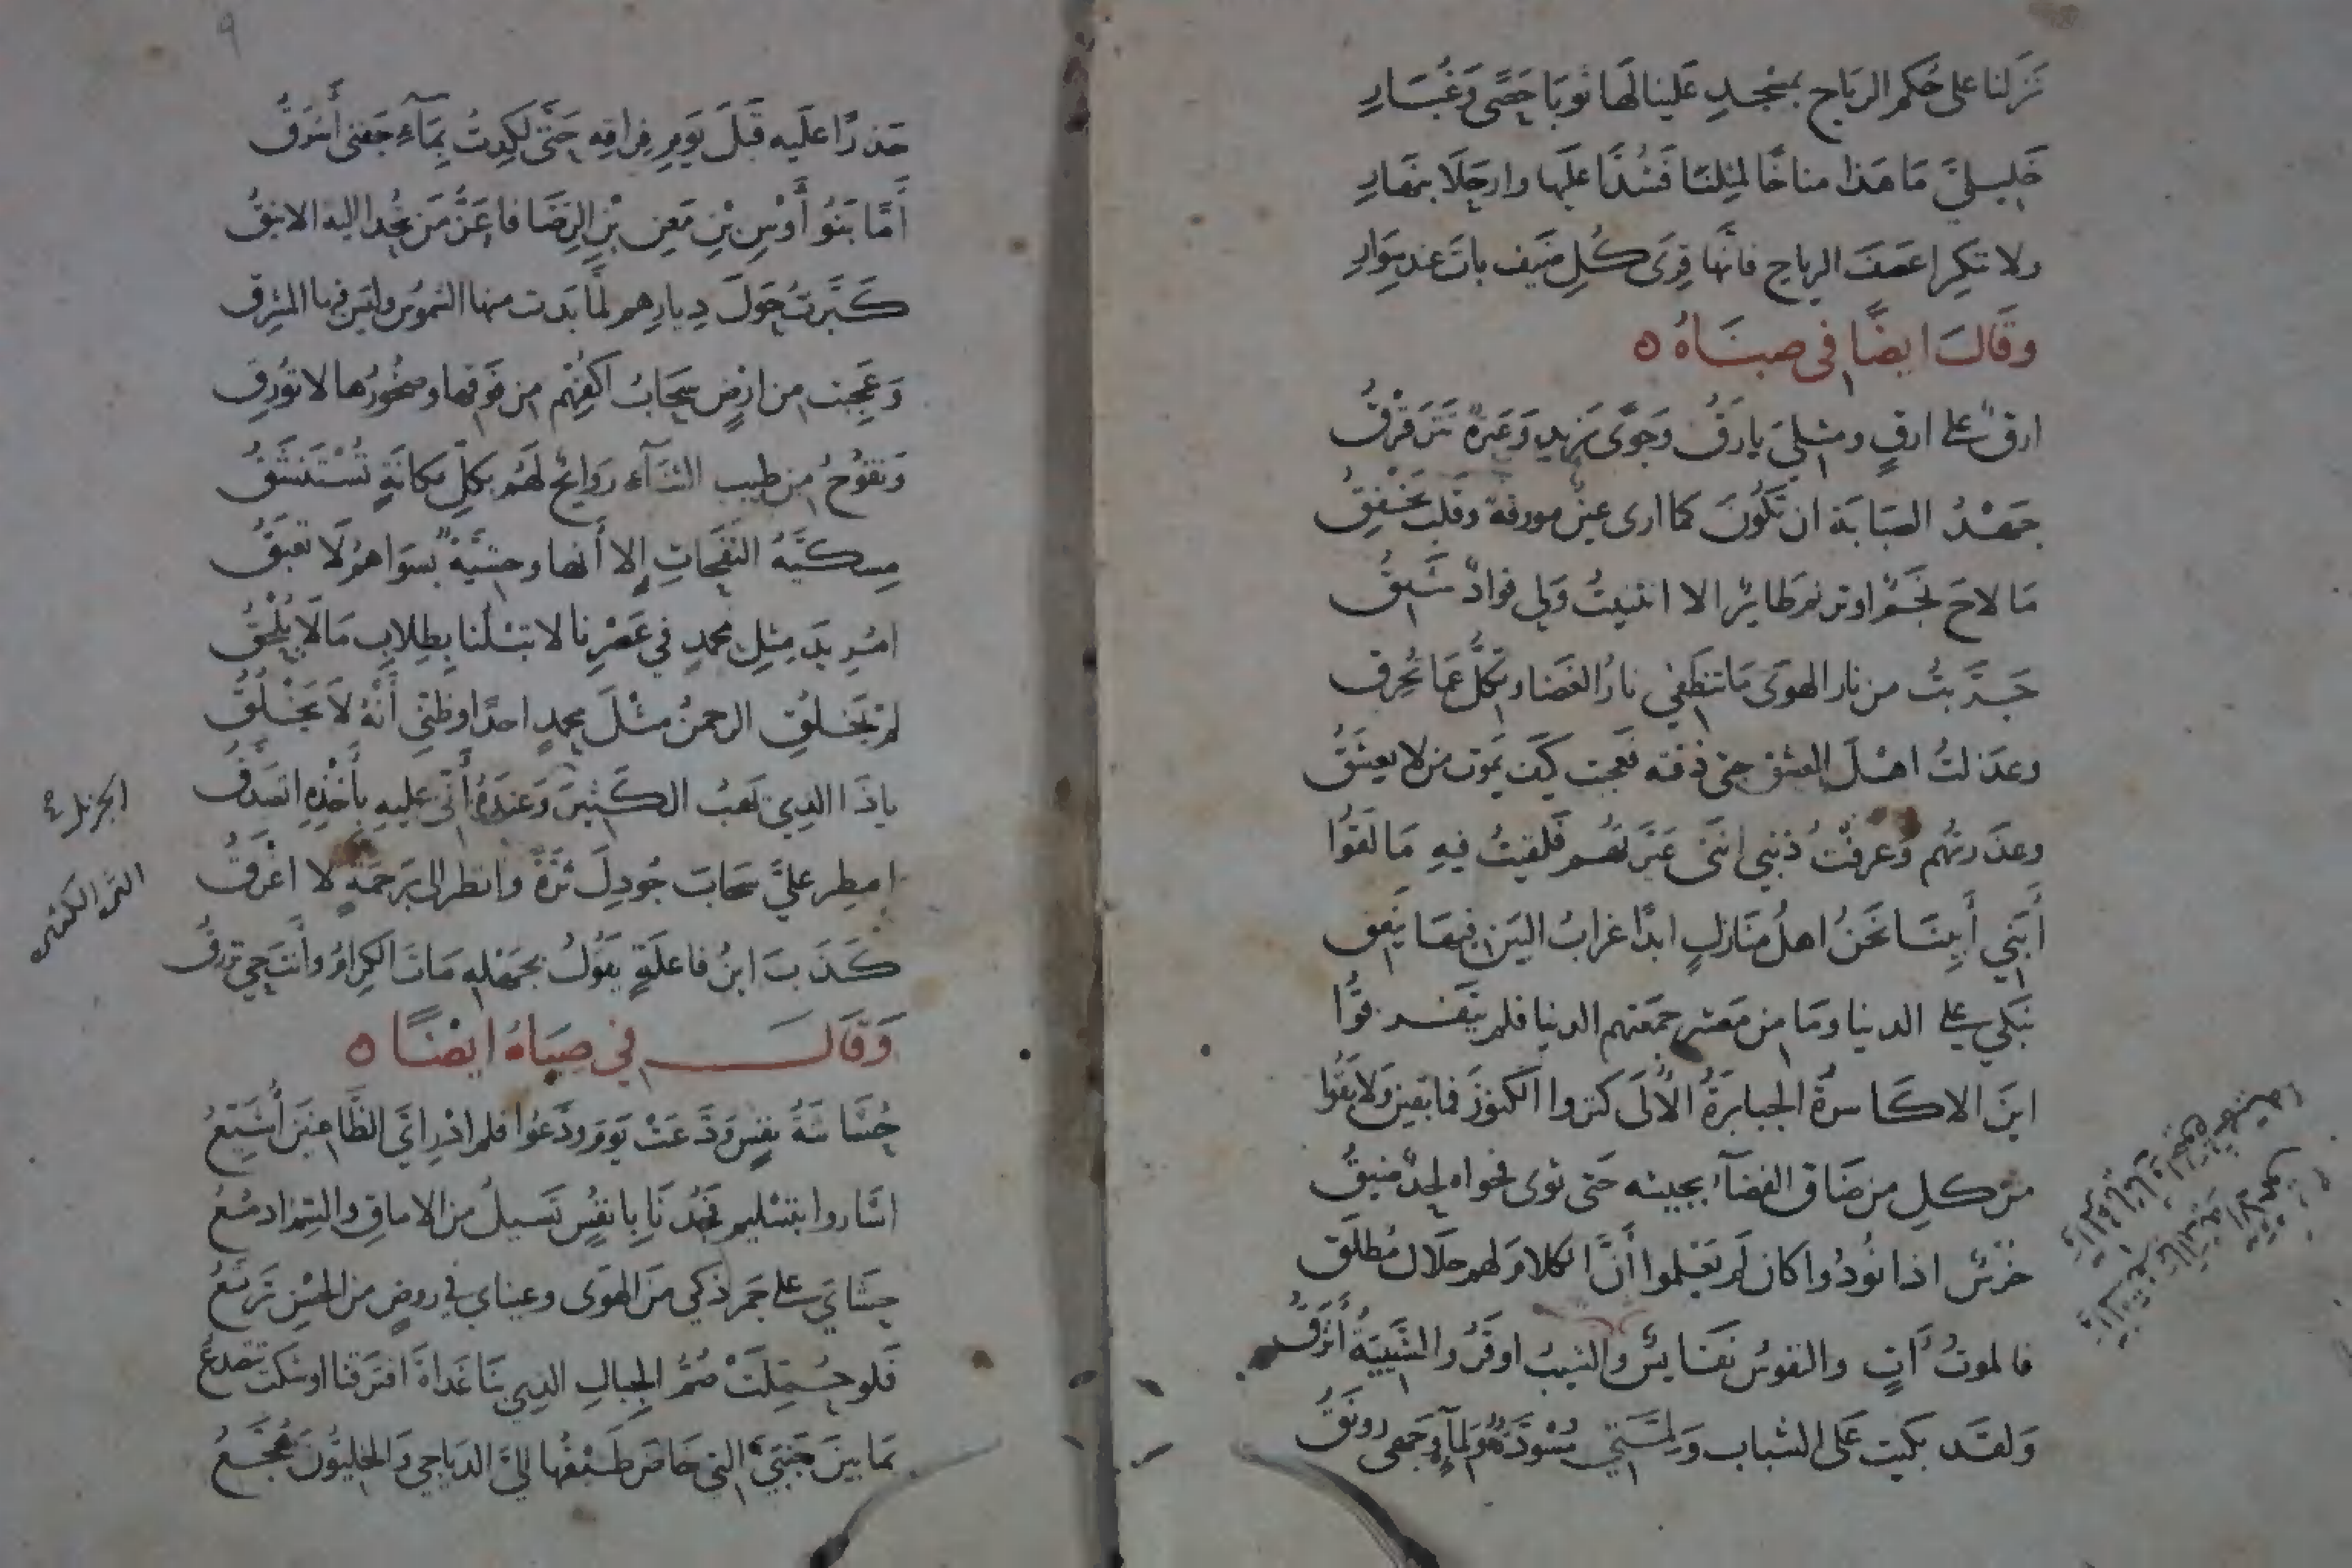 نَزَلنا على حُكم الرياح بمسجدٍ عَلينا لَها ثوبَا حَصًى وَغُبَارِ
خَليليَّ مَا هَذا مناخًا لمثلنا فَشُدَّا عليها وارحَلَا بنهارِ
ولا تنكِرا عصفَ الرياح فانّها قِرَى كُلِ ضيف باتَ عند سِوارِ
وقَالَ ايضًا في صبَاهُ ه
ارقٌ على ارقٍ ومثليَ يارَقُ وَجوًى يزيد وَعَبرةٌ تَتَرقرَقُ
جَهْدُ الصَبَابَة ان تكُونَ كما ارى عينٌ مورقة وقلب يَخْفِقُ
مَا لاحَ نجَمٌ او ترنم طائرٌ الا انثنيتُ وَلي فوادٌ شَيِقُ
جَرَّبتُ من نار الهوَى مَا تنطَفي نارُ الغَضا وتكلُّ عمَا تُحرِق
وعَذلتُ اهْلَ العشق حتى ذقته فعجبت كيَف يَموت من لا يعشَقُ
وعذَرتُهم وَعَرفْتُ ذنبي انني عَيَّرتهُم فَلقيتُ فيهِ مَا لَقوُا
أَبَني أَبِينَا نَحَنُ اهلُ مَنَازلٍ ابدًا غرابُ البَين فيهَا يَنعِق
نَبكي على الدنيا ومَا من مَعشر جَمعتهم الدنيا فلم يتَفرقوُا
اينَ الاكَاسرةُ الجبابرَةُ الأُلَى كنزوا الكنوزَ فما بقين وَلا بَقُوا
من كلِ من ضَاق الفضَآءُ بجيشه حَتى ثوى فحواه لحدٌ ضيِقُ
خرْسٌ اذا نُودُوا كان لم يَعْلموا أَنَّ الكلامَ لهم حلَالٌ مُطلَق
فالموتُ أتٍ والنفوسُ نفَايسٌ والشيبُ اوقَرُ والشَّبِيبَةُ أنزَقُ
وَلقَد بكيت عَلى الشباب وَلمَّتي مُسْودَّةٌ وَلمآءِ وَجهي رونَقُ
حَذرًا علَيه قَبلَ يَومِ فِراقه حَتَّى لَكِدتُ بِمَآءِ جَفني أَشرَقُ
أَمَّا بَنُو أَوْسِ بْنِ مَعنِ بْنِ الرِضَا فاعَزُّ مَن تُحدا اليه الاينقُ
كَبَّرتُ حَولَ دِيارِهم لمَّا بَدت منها الشموسُ وليَس فيها المشرِق
وَعَجِبت من ارْضٍ سَحَابُ اكفِّهم من فَوقها وصُخُورُها لا تُورِقِ
وَتفوُحُ من طِيب الثنَآءِ رَوايحٌ لَهمُ بكلِّ مكانَةٍ تُسْتَنشَقُ
مِسكيَّةُ النفَحَاتِ إلا أَنها وحشيَّةٌ بسوَاهمُ لَا تعبَقُ
امُريدَ مِثلِ محمدٍ في عَصْرِنا لا تبْلُنا بِطِلابِ مَا لَا يُلْحقُ
لم يَخلُقِ الرحمنُ مثْلَ محمدٍ احدًا وظَني أَنَّهُ لَا يَخْلُقُ
ياذَا الذِي يَهَبُ الكَثيرَ وَعِندَهُ أَنّي عليهِ بأَخْذِهِ اتصَدَّقُ
الجزيل
امطِر عليَّ سَحابَ جُودِكَ ثرَّةً وانظر الي برَحمَةٍ لا اغْرَقُ
كَذَبَ ابنُ فاعلَةٍ يقوُلُ بجهْلِه مَاتَ الكِرامُ وأنتَ حيٌ ترزقُ
وَقَالَ في صِبَاهُ ايضًا ه
حُشَاشَةُ نفسٍ ودَّعَتْ يَومَ ودَّعُوا فلم ادْرِ ايَّ الظَّاعنَين أُشَيِّعُ
اشَاروا بتسْليمٍ فجُدْنَا بِانفُسٍ تَسيلُ من الاماقِ والسِّمُ ادمُعُ
حَشَايَ على جَمر ذَكي مَن الهَوَى وعيناي في روضٍ من الحُسْنِ تَرتَعُ
فَلو حُمِّلَتْ صُمُّ الجِبالِ الذِي بنَا غَداةَ افتَرقنا اوشكت تتصَدعُ
بمَا بينَ جَنبَيَّ التي خَاضَ طَيْفُها اليَّ الدياجي وَالخليُّونَ هُجَّعُ